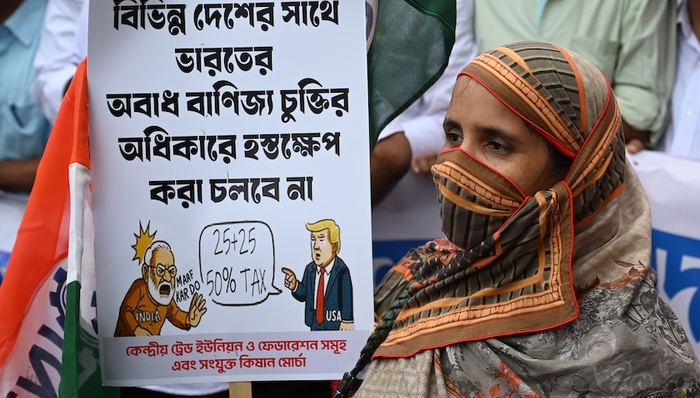 বিভিন্ন দেশের সাথে
ভারতের
অবাধ বাণিজ্য চুক্তির
অধিকারে হস্তক্ষেপ
করা চলবে না
MAAF
KAR DO
25+25
50% TAX
INDIA
USA
কেন্দ্রীয় ট্রেড ইউনিয়ন ও ফেডারেশন সমূহ
এবং সংযুক্ত কিষান মোর্চা